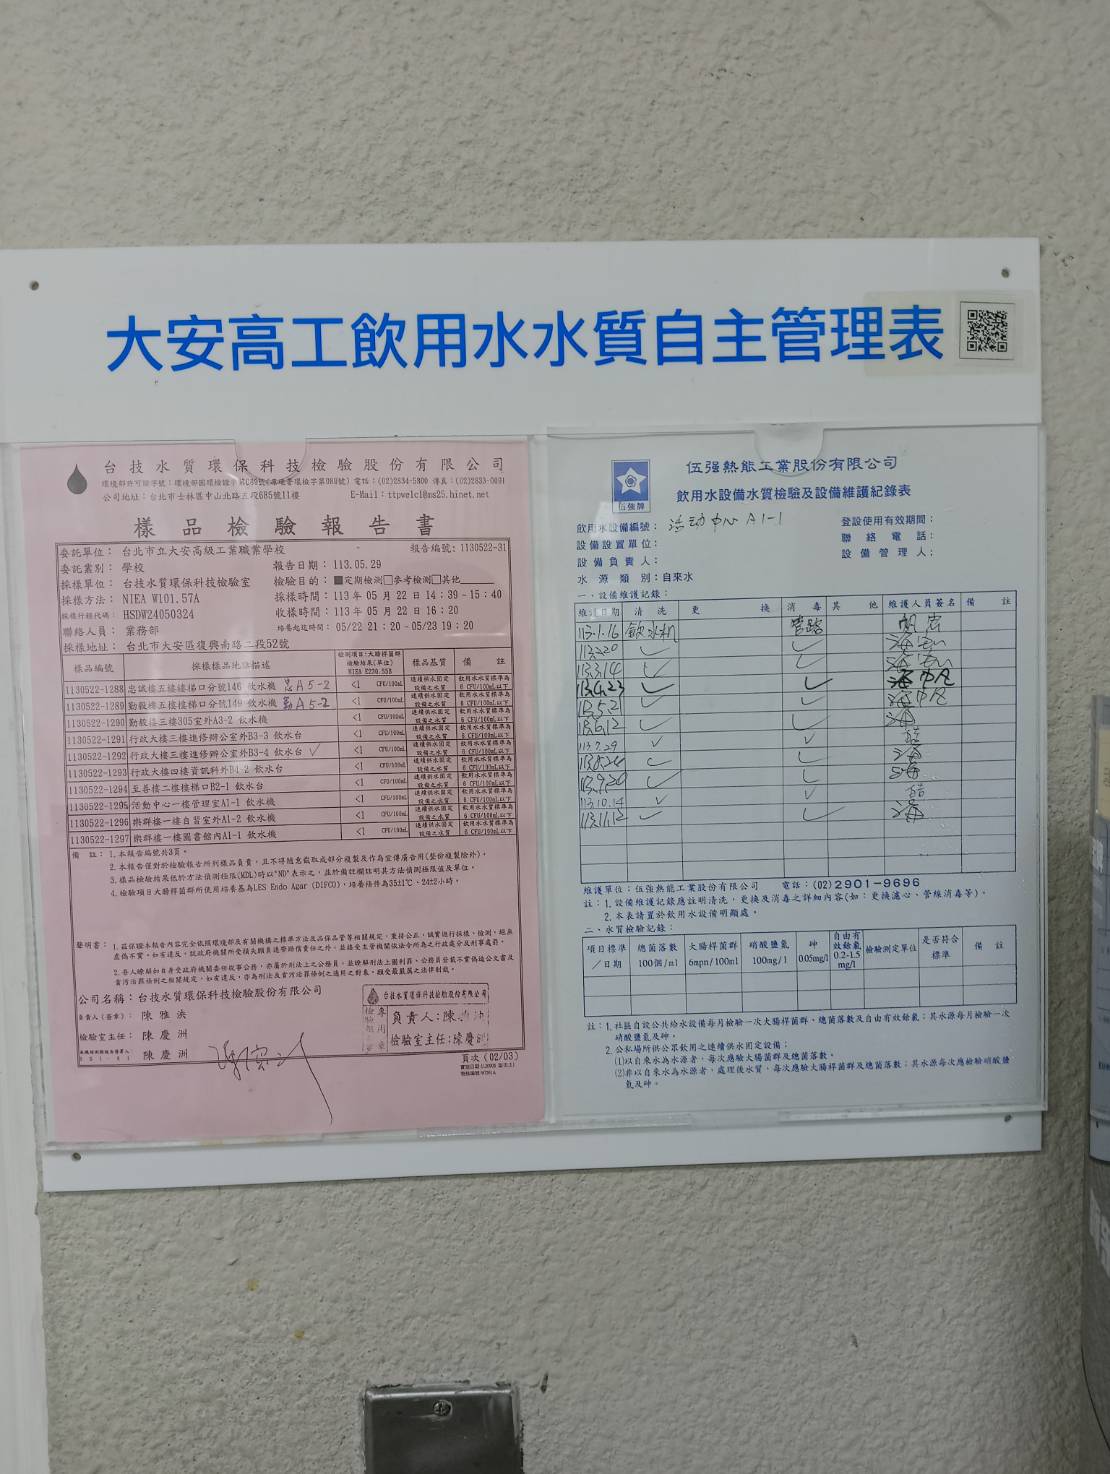 大安高工飲用水水質自主管理表
台技水質環保科技檢驗股份有限公司
電話：(02)2834-5800 傳真：(02)2833-0091
公司地址：台北市士林區中山北路五段685號11樓 E-Mail：ttpwelcl@ms25.hinet.net
樣品檢驗報告書
委託單位：台北市立大安高級工業職業學校 報告編號：1130522-31
委託業別：學校 報告日期：113.05.29
採樣單位：台技水質環保科技檢驗室 檢驗目的：■定期檢測□參考檢測□其他
採樣方法：NIEA W101.57A 採樣時間：113 年 05 月 22 日 14：39-15：40
採樣行程代碼：HSDW24050324 收樣時間：113 年 05 月 22 日 16：20
聯絡人員：業務部 培養起迄時間：05/22 21：20-05/23 19：20
採樣地址：台北市大安區復興南路二段52號
樣品編號 採樣樣品地點描述 檢測項目：大腸桿菌群 檢驗結果(單位) NIEA E230.55B 樣品基質 備註
1130522-1288 忠誠樓五樓樓梯口分號146 飲水機 忠A5-2 <1 CFU/100mL 連續供水固定設備之水質 飲用水水質標準為6 CFU/100mL以下
1130522-1289 勤毅樓五樓樓梯口分號149 飲水機 勤A5-2 <1 CFU/100mL 連續供水固定設備之水質 飲用水水質標準為6 CFU/100mL以下
1130522-1290 勤毅樓三樓305室外A3-2 飲水機 <1 CFU/100mL 連續供水固定設備之水質 飲用水水質標準為6 CFU/100mL以下
1130522-1291 行政大樓三樓進修辦公室外B3-3 飲水台 <1 CFU/100mL 連續供水固定設備之水質 飲用水水質標準為6 CFU/100mL以下
1130522-1292 行政大樓三樓進修辦公室外B3-4 飲水台 ✓ <1 CFU/100mL 連續供水固定設備之水質 飲用水水質標準為6 CFU/100mL以下
1130522-1293 行政大樓四樓資訊科外B4-2 飲水台 <1 CFU/100mL 連續供水固定設備之水質 飲用水水質標準為6 CFU/100mL以下
1130522-1294 至善樓二樓樓梯口B2-1 飲水台 <1 CFU/100mL 連續供水固定設備之水質 飲用水水質標準為6 CFU/100mL以下
1130522-1295 活動中心一樓管理室A1-1 飲水機 <1 CFU/100mL 連續供水固定設備之水質 飲用水水質標準為6 CFU/100mL以下
1130522-1296 樂群樓一樓自習室外A1-2 飲水機 <1 CFU/100mL 連續供水固定設備之水質 飲用水水質標準為6 CFU/100mL以下
1130522-1297 樂群樓一樓圖書館內A1-1 飲水機 <1 CFU/100mL 連續供水固定設備之水質 飲用水水質標準為6 CFU/100mL以下
備 註：1.本報告編號共3頁。
2.本報告僅對於檢驗報告所列樣品負責，且不得隨意截取或部分複製及作為宣傳廣告用(整份複製除外)。
3.樣品檢驗結果低於方法偵測極限(MDL)時以"ND"表示之，並於備註欄註明其方法偵測極限值及單位。
4.檢驗項目大腸桿菌群所使用培養基為LES Endo Agar (DIFCO)，培養條件為35±1℃、24±2小時。
公司名稱：台技水質環保科技檢驗股份有限公司
負責人(簽章)：陳雅洪
檢驗室主任：陳慶洲
陳慶洲
台技水質環保科技檢驗股份有限公司
檢驗報告專用章
負責人：陳
檢驗室主任：陳慶洲
頁次 (02/03)
伍強牌
伍强熱能工業股份有限公司
飲用水設備水質檢驗及設備維護紀錄表
飲用水設備編號：活动中心 A1-1 登設使用有效期間：
設備設置單位： 聯絡電話：
設備負責人： 設備管理人：
水源類別：自來水
一、設備維護記錄：
維護日期 清洗 更換 消毒 其他 維護人員簽名 備註
113.1.16 飲水机 管路
113.2.20 ✓ ✓
113.3.14 ✓ ✓
113.4.23 ✓ ✓
113.5.21 ✓ ✓
113.6.12 ✓ ✓
113.7.29 ✓ ✓
113.8.24 ✓ ✓
113.9.20 ✓ ✓
113.10.14 ✓ ✓
113.11.12 ✓ ✓
維護單位：伍強熱能工業股份有限公司 電話：(02)2901-9696
註：1.設備維護記錄應註明清洗，更換及消毒之詳細內容(如：更換濾心、管線消毒等)。
2.本表請置於飲用水設備明顯處。
二、水質檢驗記錄：
項目標準／日期 總菌落數 100個/ml 大腸桿菌群 6mpn/100ml 硝酸鹽氮 100mg/l 砷 0.05mg/l 自由有效餘氯 0.2-1.5 mg/l 檢驗測定單位 是否符合標準 備註
註：1.社區自設公共給水設備每月檢驗一次大腸桿菌群、總菌落數及自由有效餘氯；其水源每月檢驗一次
硝酸鹽氮及砷。
2.公私場所供公眾飲用之連續供水固定設備：
(1)以自來水為水源者，每次應驗大腸菌群及總菌落數。
(2)非以自來水為水源者，處理後水質，每次應驗大腸桿菌群及總菌落數；其水源每次應檢驗硝酸鹽
氮及砷。